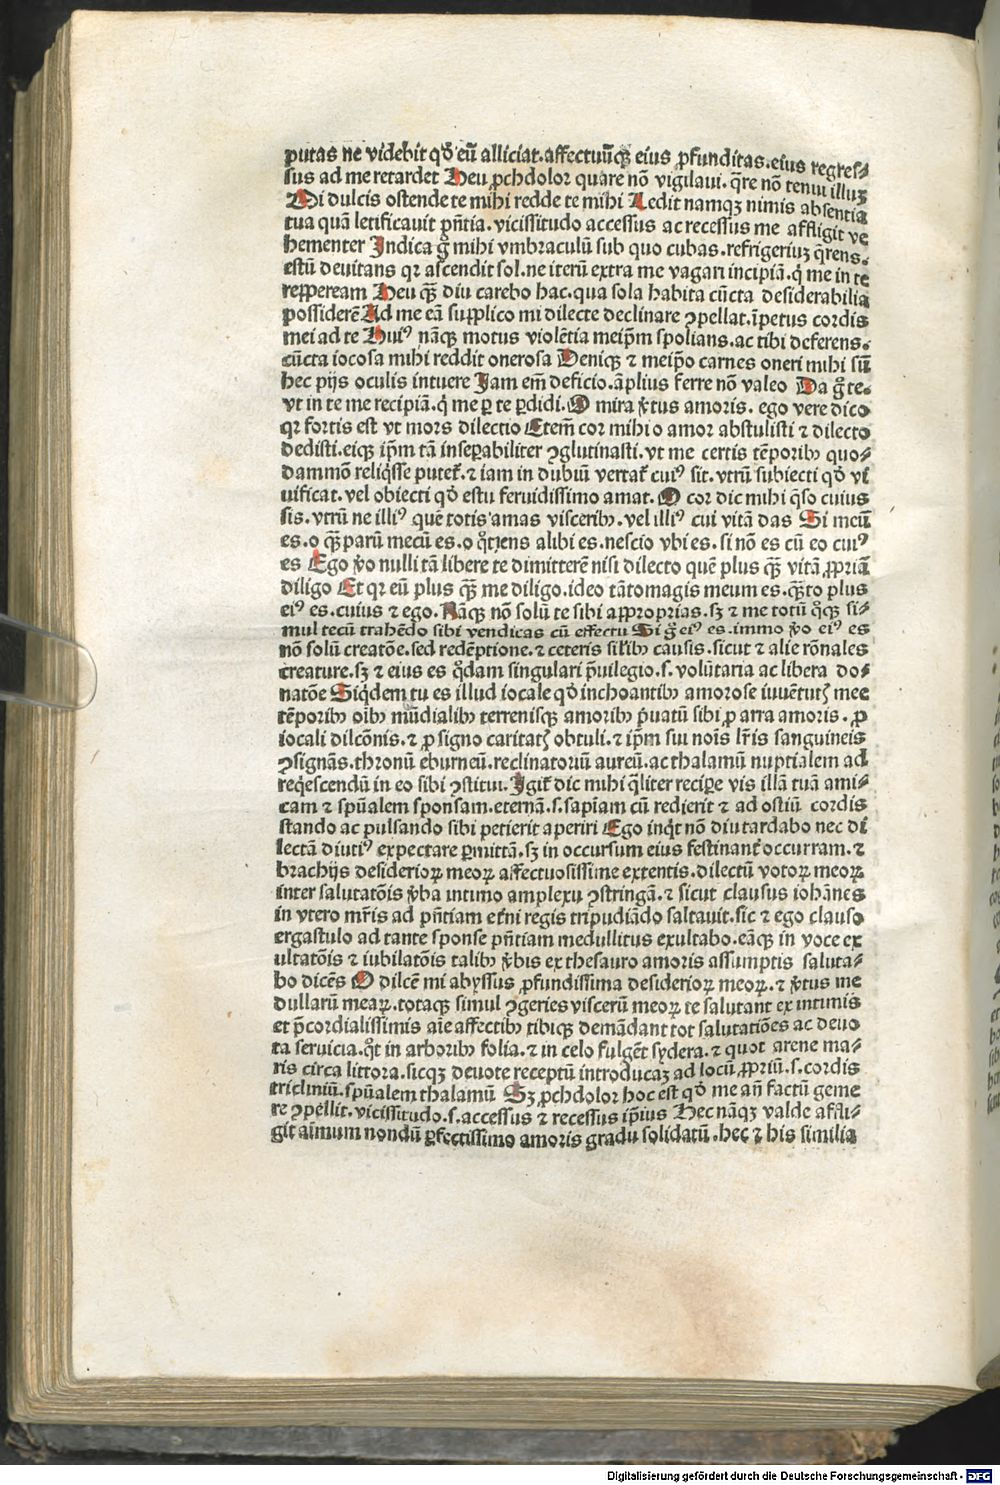 putas ne videbit qd̛ eū alliciat.affectuūqꝫ eius ꝓfunditas.eius regreſ⸗
ſus ad me retardet Heu ꝓchdolor quare nō vigilaui.q̄re nō tenui illuꝫ
Mi dulcis oſtende te mihi redde te mihi Ledit namqꝫ nimis abſentia
tua quā letificauit p̄ntia.viciſſitudo acceſſus ac receſſus me affligit ve
hementer Indica g̊ mihi vmbraculū ſub quo cubas.refrigeriuꝫ q̄rens.
eſtū deuitans qꝛ aſcendit ſol.ne iterū extra me vagari incipiā.q̇ me in te
reꝑpeream Heu qꝙ̄ diu carebo hac.qua ſola habita cūcta deſiderabilia
poſſiderē Ad me eā ſupplico mi dilecte declinare ꝯpellat.īpetus cordis
mei ad te Huiꝰ nāqꝫ motus violētia meip̄m ſpolians.ac tibi deferens.
cūcta iocoſa mihi reddit oneroſa Deniqꝫ ⁊ meip̄o carnes oneri mihi ſūt
hec pijs oculis intuere Jam em̄ deficio.āplius ferre nō valeo Da g̊ te.
vt in te me recipiā.q̇ me ꝑ te ꝑdidi.O mira v̓tus amoris. ego vere dico
qꝛ fortis eſt vt mors dilectio Etem̄ cor mihi o amor abſtuliſti ⁊ dilecto
dediſti.eiqꝫ ip̄m tā inſeꝑabiliter ꝯglutinaſti.vt me certis tēporibꝫ quo⸗
dammō reliq̇ſſe putet᷑.⁊ iam in dubiū vertat᷑ cuiꝰ ſit.vtrū ſubiecti qd̛ vi
uificat.vel obiecti qd̛ eſtu feruidiſſimo amat. O cor dic mihi q̄ſo cuius
ſis.vtrū ne illiꝰ quē totis amas viſceribꝫ.vel illiꝰ cui vitā das Si mecū
es.o qꝙ̄ parū mecū es.o q̊tiens alibi es.neſcio vbi es.ſi nō es cū eo cuiꝰ
es Ego v̓o nulli tā libere te dimitterē niſi dilecto quē plus qꝙ̄ vitā ꝓpriā
diligo Et qꝛ eū plus qꝙ̄ me diligo.ideo tātomagis meum es.qꝙ̄to plus
eiꝰ es.cuius ⁊ ego. Nāqꝫ nō ſolū te ſibi approprias.ſꝫ ⁊ me totū q̊qꝫ ſi⸗
mul tecū trahēdo ſibi vendicas cū effectu Si g̊ eiꝰ es.immo v̓o eiꝰ es
nō ſolū creatōe.ſed redēptione.⁊ ceteris ſil̓ibꝫ cauſis.ſicut ⁊ alie rōnales
creature.ſꝫ ⁊ eius es q̊dam ſingulari p̄uilegio.ſ.volūtaria ac libera do⸗
natōe Siq̇dem tu es illud iocale qd̛ inchoantibꝫ amoroſe iuuētutꝭ mee
tēporibꝫ oībꝫ mūdialibꝫ terreniſqꝫ amoribꝫ p̄uatū ſibi ꝓ arra amoris. ꝓ
iocali dilcōnis.⁊ ꝓ ſigno caritatꝭ obtuli.⁊ ip̄m ſui noīs lr̄is ſanguineis
ꝯſignās.thronū eburneū.reclinatoriū aureū.ac thalamū nuptialem ad
req̇eſcendū in eo ſibi ꝯſtitui. Igit᷑ dic mihi q̄liter reciꝑe vis illā tuā ami⸗
cam ⁊ ſpūalem ſponſam.eternā.ſ.ſapīam cū redierit ⁊ ad oſtiū cordis
ſtando ac pulſando ſibi petierit aperiri Ego inq̇t nō diu tardabo nec di
lectā diutiꝰ expectare ꝑmittā.ſꝫ in occurſum eius feſtinant̓ occurram.⁊
brachijs deſiderioꝝ meoꝝ affectuoſiſſime extentis.dilectū votoꝝ meoꝝ
inter ſalutatōis v̓ba intimo amplexu ꝯſtringā.⁊ ſicut clauſus iohānes
in vtero mr̄is ad p̄ntiam et̓ni regis tripudiādo ſaltauit.ſic ⁊ ego clauſo
ergaſtulo ad tante ſponſe p̄ntiam medullitus exultabo.eāqꝫ in voce ex
ultatōis ⁊ iubilatōis talibꝫ v̓bis ex theſauro amoris aſſumptis ſaluta⸗
bo dicēs O dilcē mi abyſſus ꝓfundiſſima deſiderioꝝ meoꝝ.⁊ v̓tus me
dullarū meaꝝ.totaqꝫ ſimul ꝯgeries viſcerū meoꝝ te ſalutant ex intimis
et p̄cordialiſſimis aīe affectibꝫ tibiqꝫ demādant tot ſalutatiōes ac deuo
ta ſeruicia.q̊t in arboribꝫ folia.⁊ in celo fulgēt ſydera.⁊ quot arene ma⸗
ris circa littora.ſicqꝫ deuote receptū introducaꝫ ad locū ꝓpriū.ſ.cordis
tricliniū.ſpūalem thalamū Sꝫ ꝓchdolor hoc eſt qd̛ me an̄ factū geme
re ꝯpellit.viciſſitudo.ſ.acceſſus ⁊ receſſus ip̄ius Hec nāqꝫ valde affli⸗
git aīmum nondū ꝑfectiſſimo amoris gradu ſolidatū.hec ⁊ his ſimilia
Digitalisierung gefördert durch die Deutsche Forschungsgemeinschaft - DFG